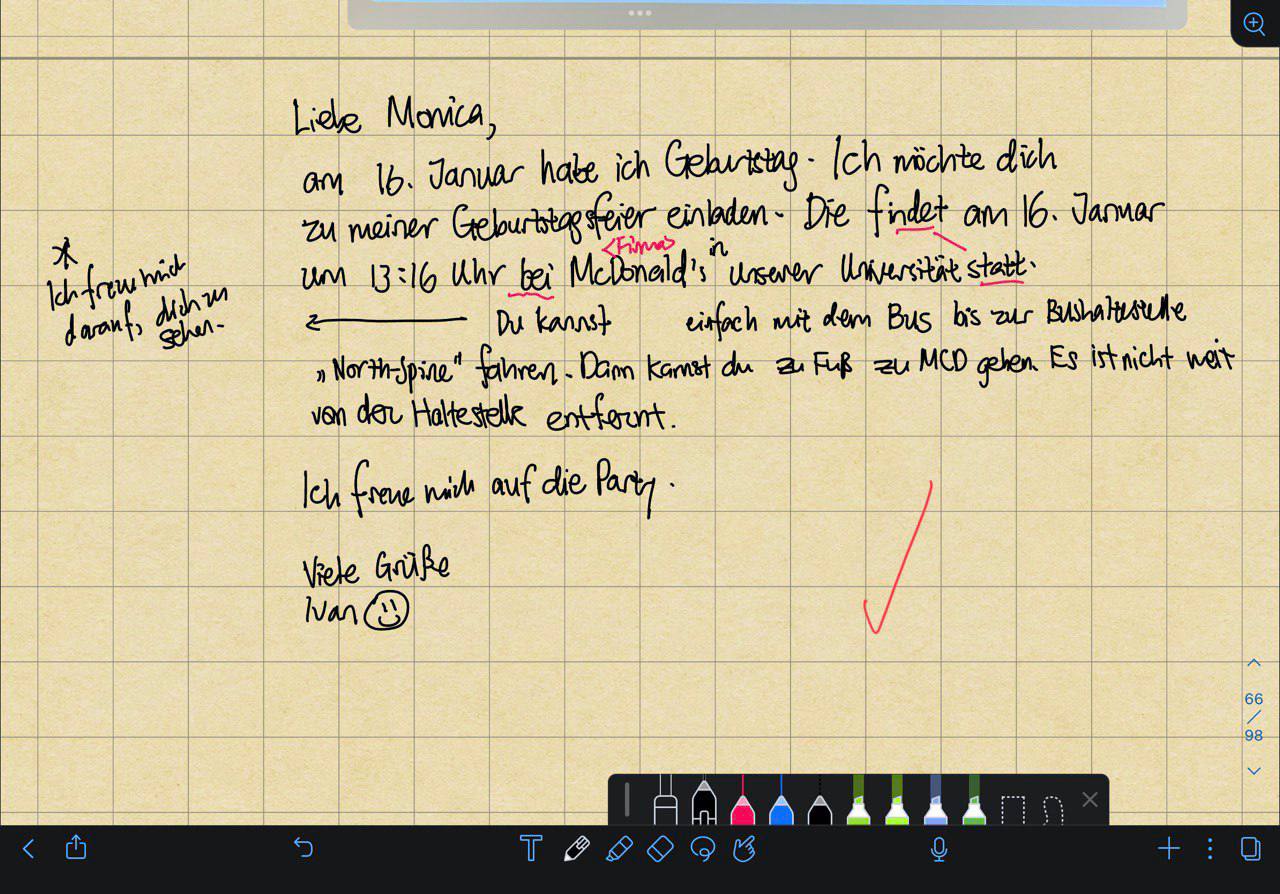 Liebe Monica,
am 16. Januar habe ich Geburtstag. Ich möchte dich
zu meiner Geburtstagsfeier einladen. Die findet am 16. Januar
<Firma>
um 13:16 Uhr bei McDonald's in unserer Universität statt.
Du kannst einfach mit dem Bus bis zur Bushaltestelle
„North-Spine" fahren. Dann kannst du zu Fuß zu MCD gehen. Es ist nicht weit
von der Haltestelle entfernt.
Ich freue mich auf die Party.
Viele Grüße
Ivan
*
Ich freue mich
darauf, dich zu
sehen.
66
/
98